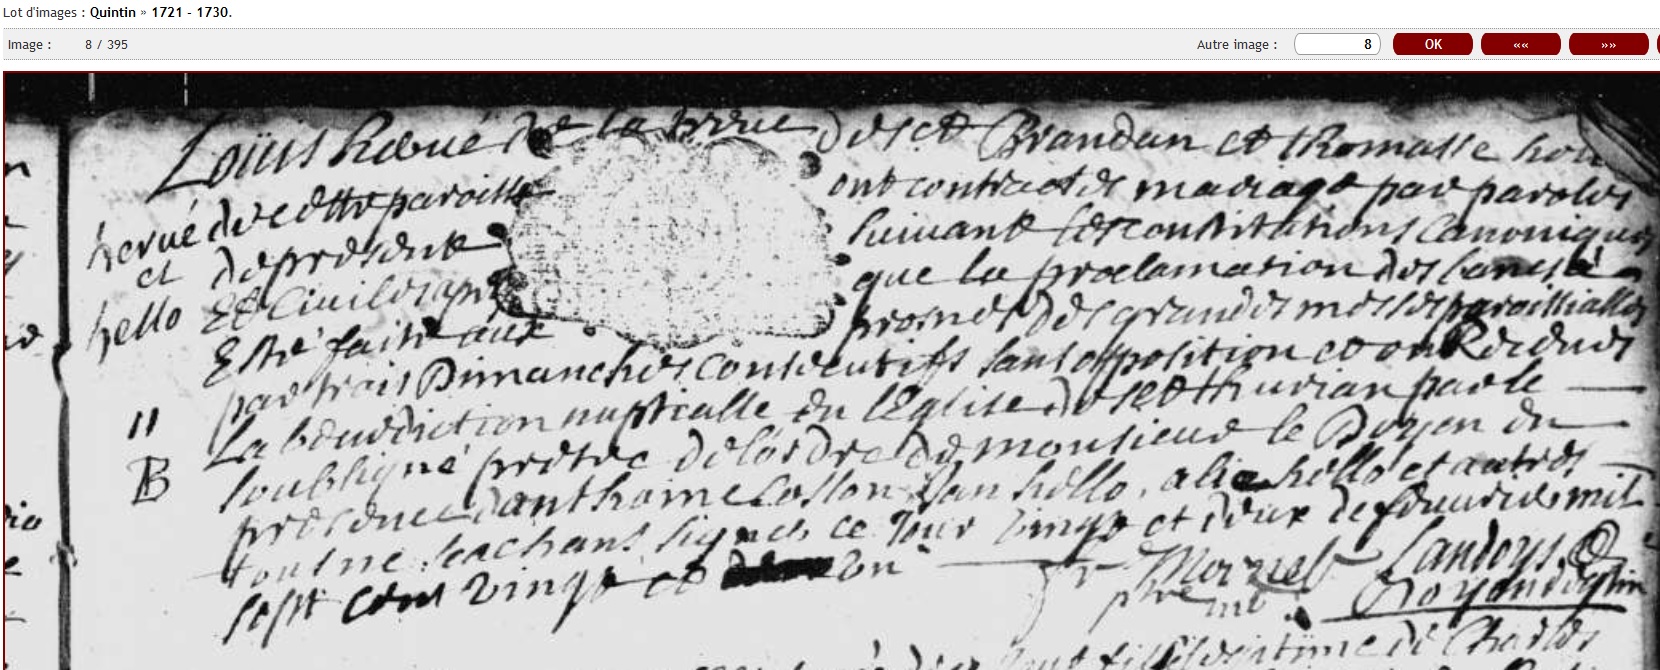 Lot d'images : Quintin » 1721 - 1730.
Image : 8 / 395 Autre image : 8 OK «« »»
Loüis hervé de la treve de sct Brandan et thomasse
hervé de cette paroisse ont contracté mariage par paroles
et de present suivant les constitutions Canoniques
hello Et Civiles que la proclamation des bancs a
Esté faitte aux prosnes des grandes messes paroissialles
par trois Dimanches Consecutifs sans opposition et ont
La benediction nuptialle en l'Eglise de sct thurian par le
soubsigné prestre de l'ordre de monsieur le Doyen en
presence d'anthoine Cosson, Jan hello, alie hello et autres
tous ne sachant signer ce Jour vingt et deux de feuvrier mil
sept Cent vingt et un
11
B
Doyen de quintin
fille legitime de Charles